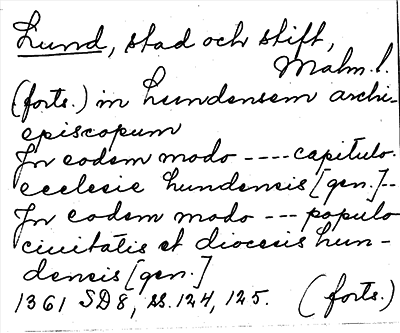 Lund, stad och stift,
Malm. l.
(forts.) in Lundensem archi-
episcopum
Jn eodem modo ---- capitulo
ecclesie Lundensis [gen.]--
Jn eodem modo --- populo
ciuitatis et diocesis Lun-
densis [gen.]
1361 SD8, ss. 124, 125. (forts.)